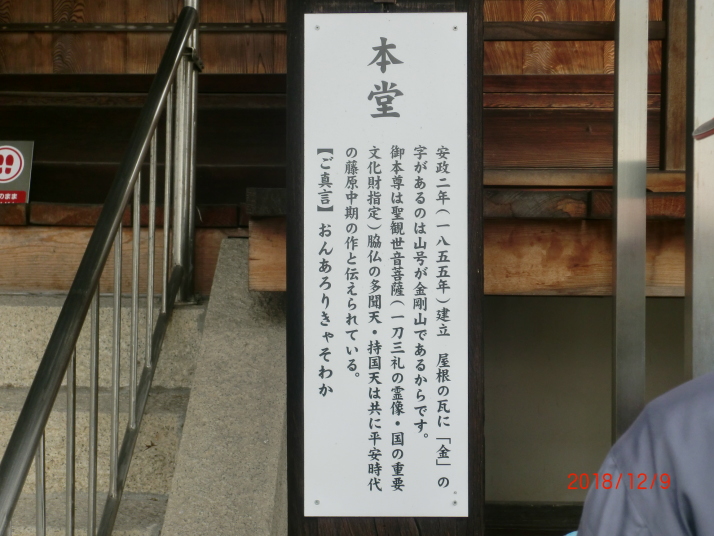 本堂
安政二年(一八五五年)建立　屋根の瓦に「金」の
字があるのは山号が金剛山であるからです。
御本尊は聖観世音菩薩(一刀三礼の霊像・国の重要
文化財指定)脇仏の多聞天・持国天は共に平安時代
の藤原中期の作と伝えられている。
【ご真言】おんあろりきゃそわか
のまま
2018/12/9